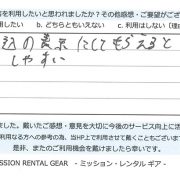 を利用したいと思われましたか？その他感想・ご要望がござ
したい　b. どちらともいえない　c. 利用はしない（理由
の表示にしてもらえると
しやすい
ました。戴いたご感想・意見を大切に今後のサービス向上に活
利用なる方への参考の為、当HP上で利用させて戴くこともございま
是非、またのご利用機会を戴けましたら幸いです。
SSION RENTAL GEAR　- ミッション・レンタル ギア -